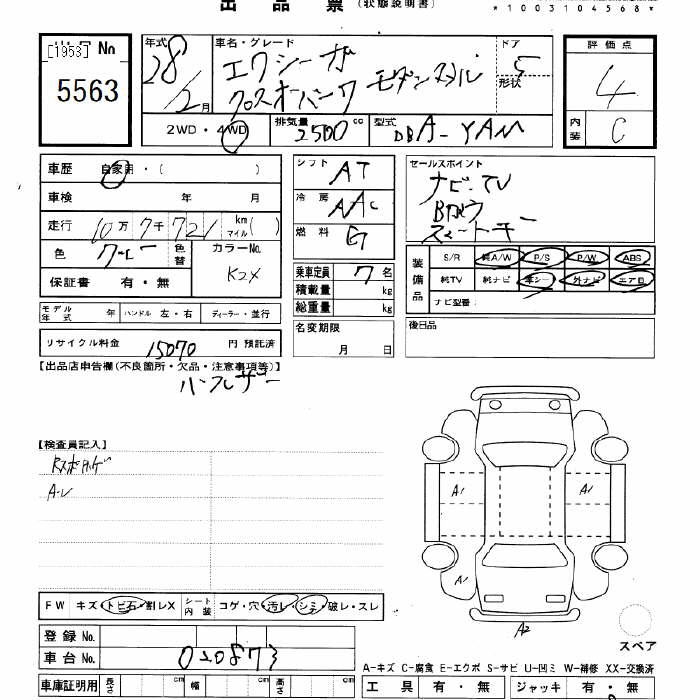 出品票 (状態説明書)
*1003104568*
[1953] No
5563
年式 28 / 2月
車名・グレード
エクシーガ
クロスオーバー7 モダンスタイル
ドア 5
形状
評価点
4
内装 C
2WD・4WD
排気量 2500 cc
型式 DBA-YAM
車歴 自家用・( )
車検 年 月
走行 10万 7千 721 km マイル ( )
色 色替
カラーNo. K2X
保証書 有・無
モデル年式 年
ハンドル 左・右
ディーラー・並行
リサイクル料金 15070 円 預託済
シフト AT
冷房 AAC
燃料 G
乗車定員 7 名
積載量 kg
総重量 kg
名変期限
月 日
セールスポイント
ナビ・TV
スマートキー
装備品
S/R 純A/W P/S P/W ABS
純TV 純ナビ 本シート 外ナビ エアB
ナビ型番:
後日品
【出品店申告欄(不良箇所・欠品・注意事項等)】
【検査員記入】
A-L
A1
A1
A1
A2
スペア
FW キズ・トビ石・割レX
シート内装 コゲ・穴・汚レ・シミ・破レ・スレ
登録No.
車台No. 020873
A-キズ C-腐食 E-エクボ S-サビ U-凹ミ W-補修 XX-交換済
車庫証明用 長さ cm 幅 cm 高さ cm
工具 有・無 ジャッキ 有・無